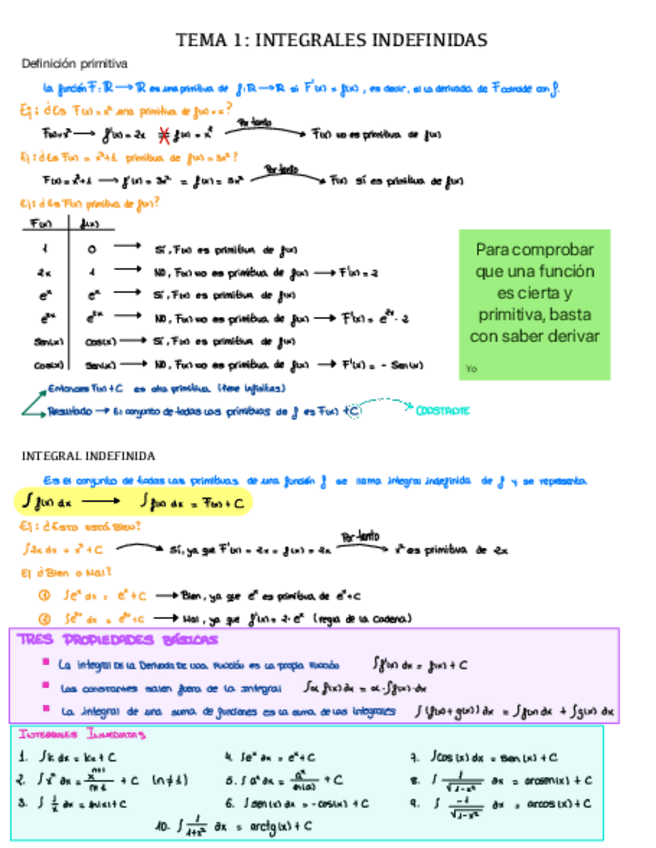 TEMA 1: INTEGRALES INDEFINIDAS
Definición primitiva
La función F: ℝ → ℝ es una primitiva de f: ℝ → ℝ si F'(x) = f(x), es decir, si la derivada de F coincide con f.
Ej: ¿Es F(x) = x² una primitiva de f(x) = x?
F(x) = x² → f'(x) = 2x ≠ f(x) = x² Por tanto → F(x) no es primitiva de f(x)
Ej: ¿Es F(x) = x³+1 primitiva de f(x) = 3x²?
F(x) = x³+1 → f'(x) = 3x² = f(x) = 3x² Por tanto → F(x) sí es primitiva de f(x)
Ej: ¿Es F(x) primitiva de f(x)?
F(x) f(x)
1 0 → Sí, F(x) es primitiva de f(x)
2x 1 → NO, F(x) no es primitiva de f(x) → F'(x) = 2
eˣ eˣ → Sí, F(x) es primitiva de f(x)
e²ˣ e²ˣ → NO, F(x) no es primitiva de f(x) → F'(x) = e²ˣ · 2
Sen(x) Cos(x) → Sí, F(x) es primitiva de f(x)
Cos(x) Sen(x) → NO, F(x) no es primitiva de f(x) → F'(x) = - Sen(x)
Para comprobar
que una función
es cierta y
primitiva, basta
con saber derivar
Yo
Entonces F(x)+C es otra primitiva (tiene infinitas)
Resultado → El conjunto de todas las primitivas de f es F(x) + C → CONSTANTE
INTEGRAL INDEFINIDA
Es el conjunto de todas las primitivas de una función f se llama integral indefinida de f y se representa
∫ f(x) dx → ∫ f(x) dx = F(x) + C
Ej: ¿Esto está Bien?
∫2x dx = x² + C → Sí, ya que F'(x) = 2x = f(x) = 2x Por tanto → x² es primitiva de 2x
Ej ¿Bien o Mal?
① ∫eˣ dx = eˣ + C → Bien, ya que eˣ es primitiva de eˣ+C
② ∫e²ˣ dx = e²ˣ + C → Mal, ya que f'(x) = 2·eˣ (regla de la cadena)
TRES PROPIEDADES BÁSICAS
La integral de la Derivada de una función es la propia función ∫f'(x) dx = f(x) + C
Las constantes salen fuera de la integral ∫α f(x) dx = α·∫f(x)·dx
La integral de una suma de funciones es la suma de las integrales ∫(f(x)+g(x)) dx = ∫f(x) dx + ∫g(x) dx
INTEGRALES INMEDIATAS
1. ∫k dx = kx + C
2. ∫xⁿ dx = xⁿ⁺¹/n+1 + C (n≠1)
3. ∫ 1/x dx = ln(x) + C
4. ∫eˣ dx = eˣ + C
5. ∫aˣ dx = aˣ/ln(a) + C
6. ∫sen(x) dx = -cos(x) + C
7. ∫cos(x) dx = sen(x) + C
8. ∫ 1/√(1-x²) dx = arcsen(x) + C
9. ∫ -1/√(1-x²) dx = arcos(x) + C
10. ∫ 1/1+x² dx = arctg(x) + C